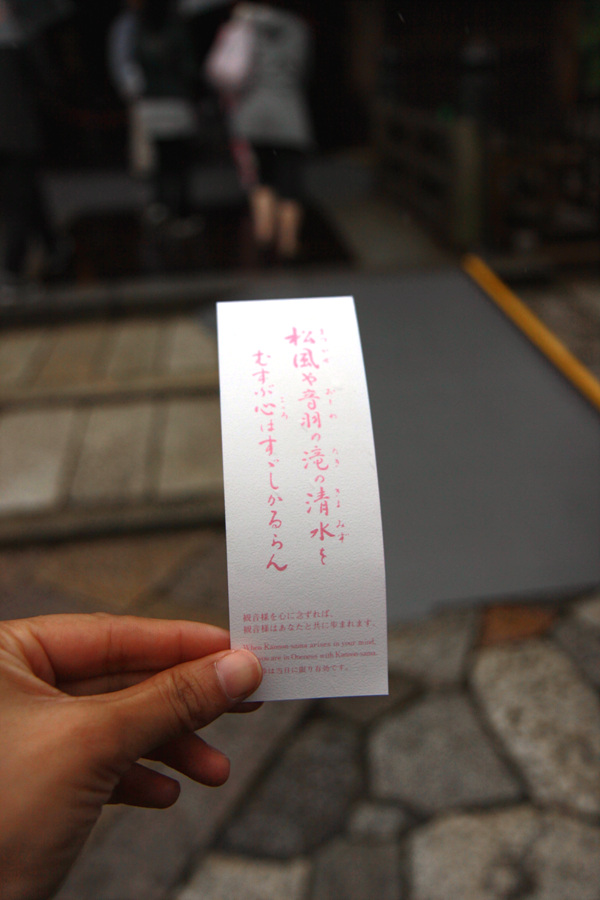 松風や音羽の滝の清水を
むすぶ心はすゞしかるらん
観音様を心に念ずれば、
観音様はあなたと共に歩まれます。
When Kannon-sama arises in your mind,
you are in Oneness with Kannon-sama.
は当日に限り有効です。